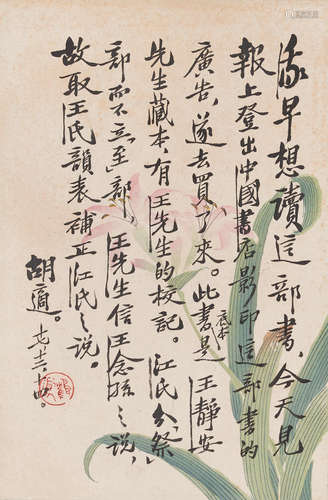 我早想讀這部書,今天見
報上登出中國書店影印這部書的
廣告,遂去買了來。此書底本是王靜安
先生藏本,有王先生的校記。江氏分「祭」
部而不立「至」部,王先生信王念孫之說,
故取王氏韻表補正江氏之說。
胡適。